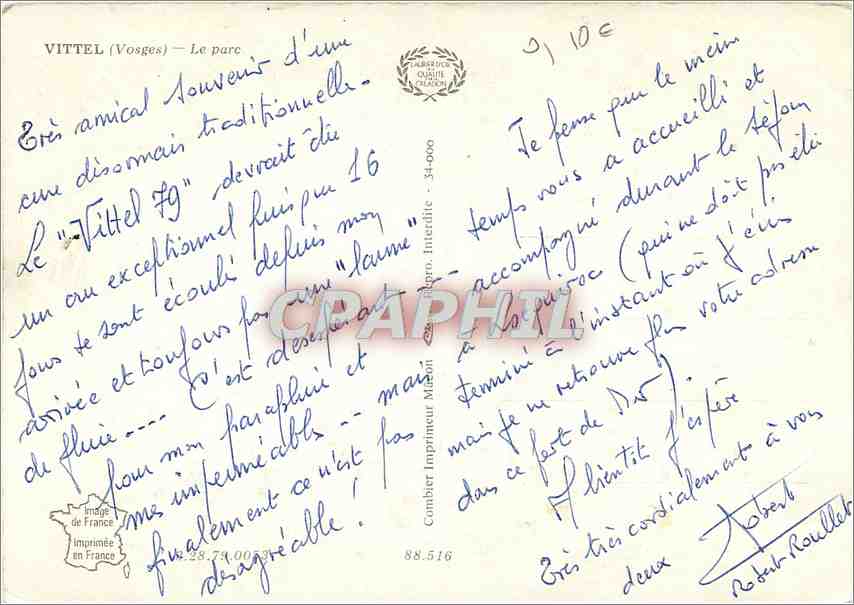 VITTEL (Vosges) — Le parc
LAURIER D'OR
DE LA
QUALITÉ
CALADION
9,10€
Très amical souvenir d'une
cure désormais traditionnelle.
Le "Vittel 79" devrait être
un cru exceptionnel puisque 16
jours se sont écoulés depuis mon
arrivée et toujours pas une "larme"
de pluie.... C'est désespérant ---
pour mon parapluie et
mes imperméables -- mais
finalement ce n'est pas
désagréable !
Je pense que le même
temps vous a accueilli et
accompagné durant le séjour
à (qui ne doit pas être
terminé à l'instant où j'écris
mais je ne retrouve plus votre adresse
dans ce port de ).
A bientôt j'espère
Très très cordialement à vous
deux Robert
Robert Roullet
Combier Imprimeur Mâcon Repro. Interdite - 34-000
CPAPHIL
Image
de France
Imprimée
en France
28.79.00
88.516